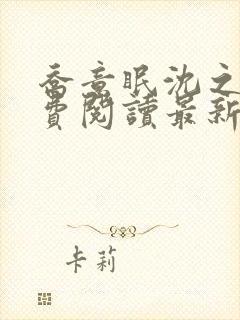 喬意眠沈之
費閱讀最新
卡莉